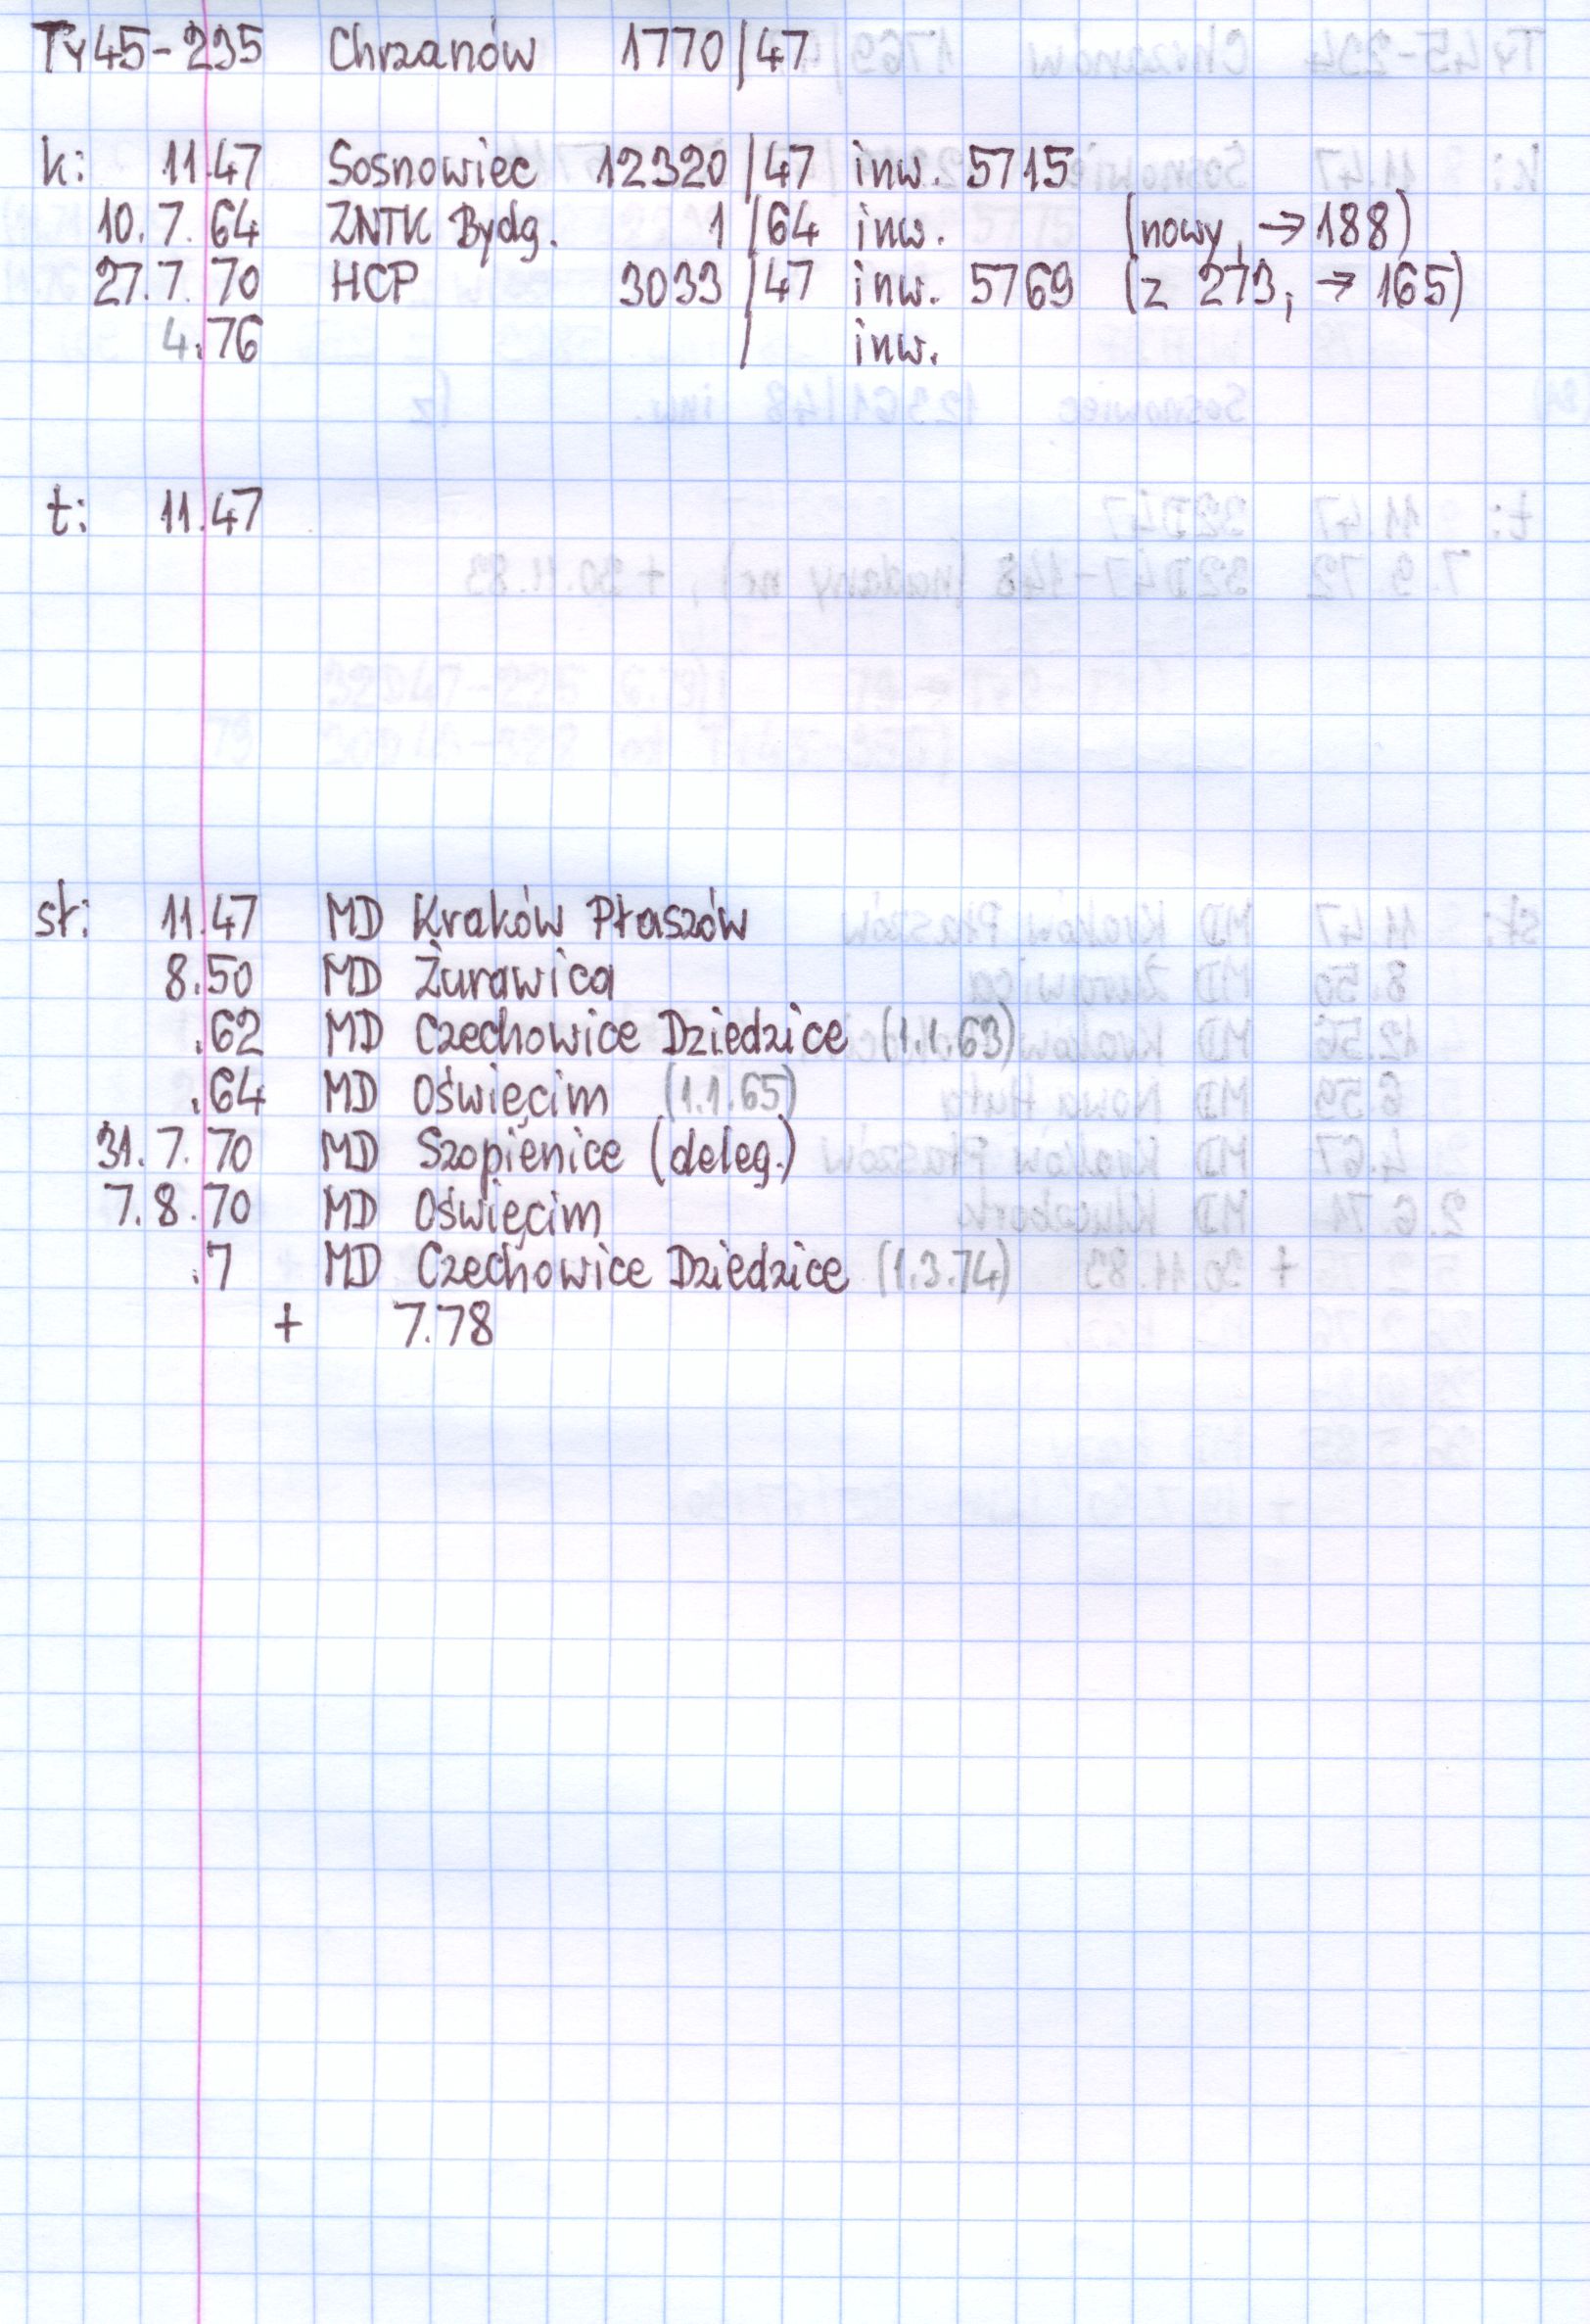 Ty45-295 Chrzanów 1770/47
k: 11.47 Sosnowiec 12320/47 inw. 5715
10.7.64 ZNTK Bydg. 1/64 inw. (nowy, → 188)
27.7.70 HCP 3033/47 inw. 5769 (z 273, → 165)
4.76 / inw.
t: 11.47
st: 11.47 MD Kraków Płaszów
8.50 MD Żurawica
.62 MD Czechowice Dziedzice (1.1.63)
.64 MD Oświęcim (1.1.65)
31.7.70 MD Szopienice (deleg.)
7.8.70 MD Oświęcim
.7 MD Czechowice Dziedzice (1.3.74)
+ 7.78